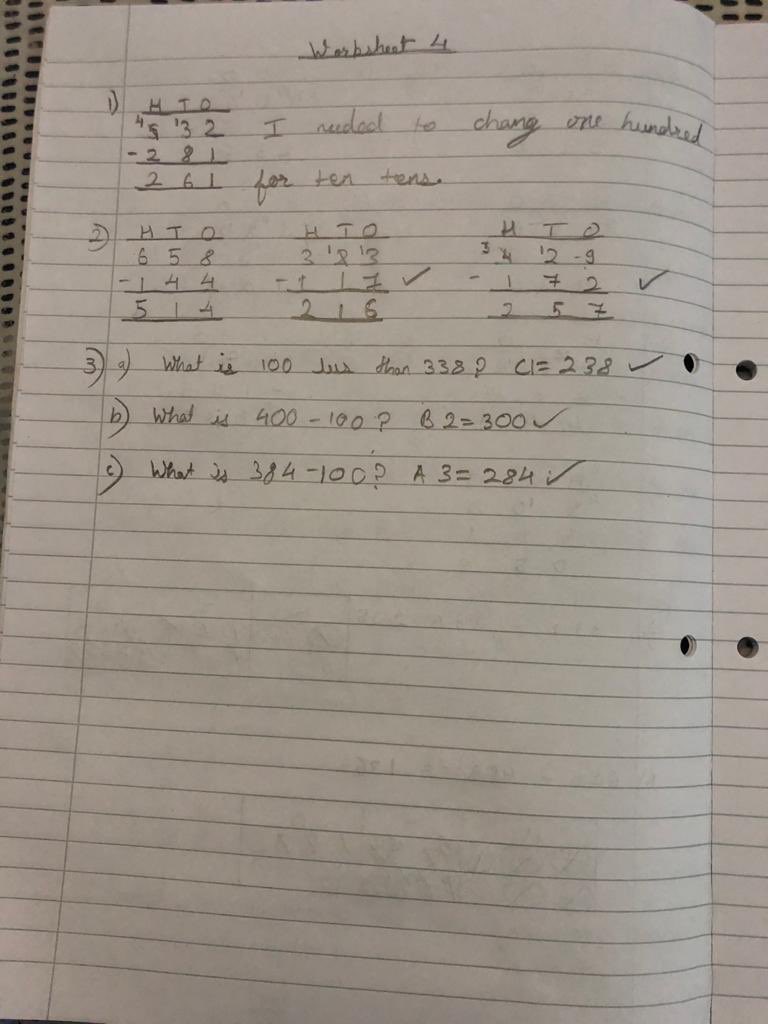 Worksheet 4
1) H T O
⁴5 ¹3 2 I needed to chang one hundred
- 2 8 1
2 6 1 for ten tens.
2) H T O H T O H T O
6 5 8 3 ¹2 ¹3 ³4 ¹2 9
- 1 4 4 - 1 1 7 ✓ - 1 7 2 ✓
5 1 4 2 1 6 2 5 7
3) a) What is 100 less than 338? C1 = 238 ✓
b) What is 400 - 100? B 2 = 300 ✓
c) What is 384 - 100? A 3 = 284 ✓